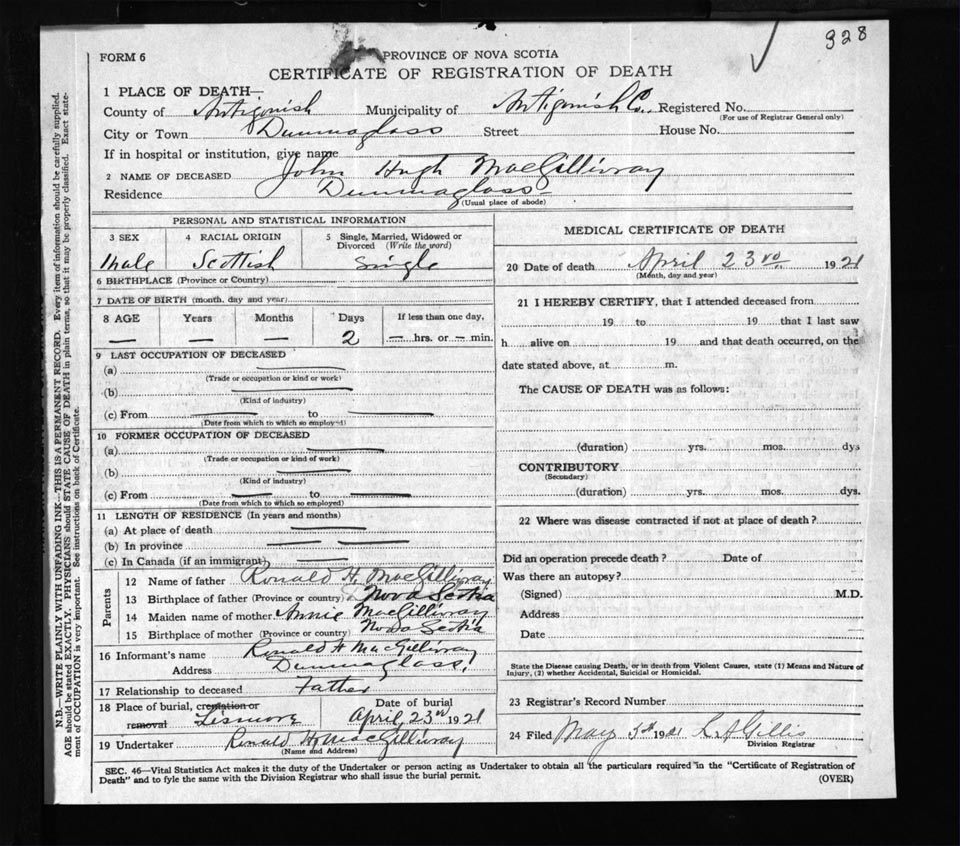 928
FORM 6
PROVINCE OF NOVA SCOTIA
CERTIFICATE OF REGISTRATION OF DEATH
1 PLACE OF DEATH—
County of Antigonish Municipality of Antigonish Co. Registered No.
(For use of Registrar General only)
City or Town Dunmaglass Street House No.
If in hospital or institution, give name
2 NAME OF DECEASED John Hugh MacGillivray
Residence Dunmaglass
(Usual place of abode)
PERSONAL AND STATISTICAL INFORMATION
3 SEX 4 RACIAL ORIGIN 5 Single, Married, Widowed or Divorced (Write the word)
Male Scottish Single
6 BIRTHPLACE (Province or Country)
7 DATE OF BIRTH (month, day and year)
8 AGE Years Months Days If less than one day,
— — — 2 — hrs. or — min.
9 LAST OCCUPATION OF DECEASED
(a)
(Trade or occupation or kind or work)
(b)
(Kind of industry)
(c) From to
(Date from which to which so employed)
10 FORMER OCCUPATION OF DECEASED
(a)
(Trade or occupation or kind of work)
(b)
(Kind of industry)
(c) From to
(Date from which to which so employed)
11 LENGTH OF RESIDENCE (In years and months)
(a) At place of death
(b) In province
(c) In Canada (if an immigrant)
Parents
12 Name of father Ronald H. MacGillivray
13 Birthplace of father (Province or country) Nova Scotia
14 Maiden name of mother Annie MacGillivray
15 Birthplace of mother (Province or country) Nova Scotia
16 Informant's name Ronald H MacGillivray
Address Dunmaglass
17 Relationship to deceased Father
18 Place of burial, cremation or Date of burial
removal Lismore April 23rd 1921
19 Undertaker Ronald H MacGillivray
(Name and Address)
MEDICAL CERTIFICATE OF DEATH
20 Date of death April 23rd 1921
(Month, day and year)
21 I HEREBY CERTIFY, that I attended deceased from
19 to 19 that I last saw
h alive on 19 and that death occurred, on the
date stated above, at m.
The CAUSE OF DEATH was as follows:
(duration) yrs. mos. dys
CONTRIBUTORY
(Secondary)
(duration) yrs. mos. dys.
22 Where was disease contracted if not at place of death?
Did an operation precede death? Date of
Was there an autopsy?
(Signed) M.D.
Address
Date
State the Disease causing Death, or in death from Violent Causes, state (1) Means and Nature of
Injury, (2) whether Accidental, Suicidal or Homicidal.
23 Registrar's Record Number
24 Filed May 5th 1921 Gillis
Division Registrar
SEC. 46—Vital Statistics Act makes it the duty of the Undertaker or person acting as Undertaker to obtain all the particulars required in the "Certificate of Registration of
Death" and to fyle the same with the Division Registrar who shall issue the burial permit.
(OVER)
N.B.—WRITE PLAINLY WITH UNFADING INK—THIS IS A PERMANENT RECORD. Every item of information should be carefully supplied.
AGE should be stated EXACTLY. PHYSICIANS should STATE CAUSE OF DEATH in plain terms, so that it may be properly classified. Exact state-
ment of OCCUPATION is very important. See instructions on back of Certificate.